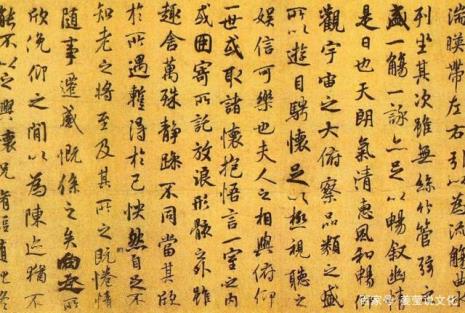 湍暎帶左右引以為流觴曲
列坐其次雖無絲竹管弦之
盛一觴一詠亦足以暢敘幽情
是日也天朗氣清惠風和暢仰
觀宇宙之大俯察品類之盛
所以遊目騁懷足以極視聽之
娛信可樂也夫人之相與俯仰
一世或取諸懷抱悟言一室之內
或因寄所託放浪形骸之外雖
趣舍萬殊靜躁不同當其欣
於所遇蹔得於己怏然自足不
知老之將至及其所之既惓情
隨事遷感慨係之矣向之所
欣俛仰之間以為陳迹猶不
能不以之興懷況脩短隨化終
百家号/姜莹说文化